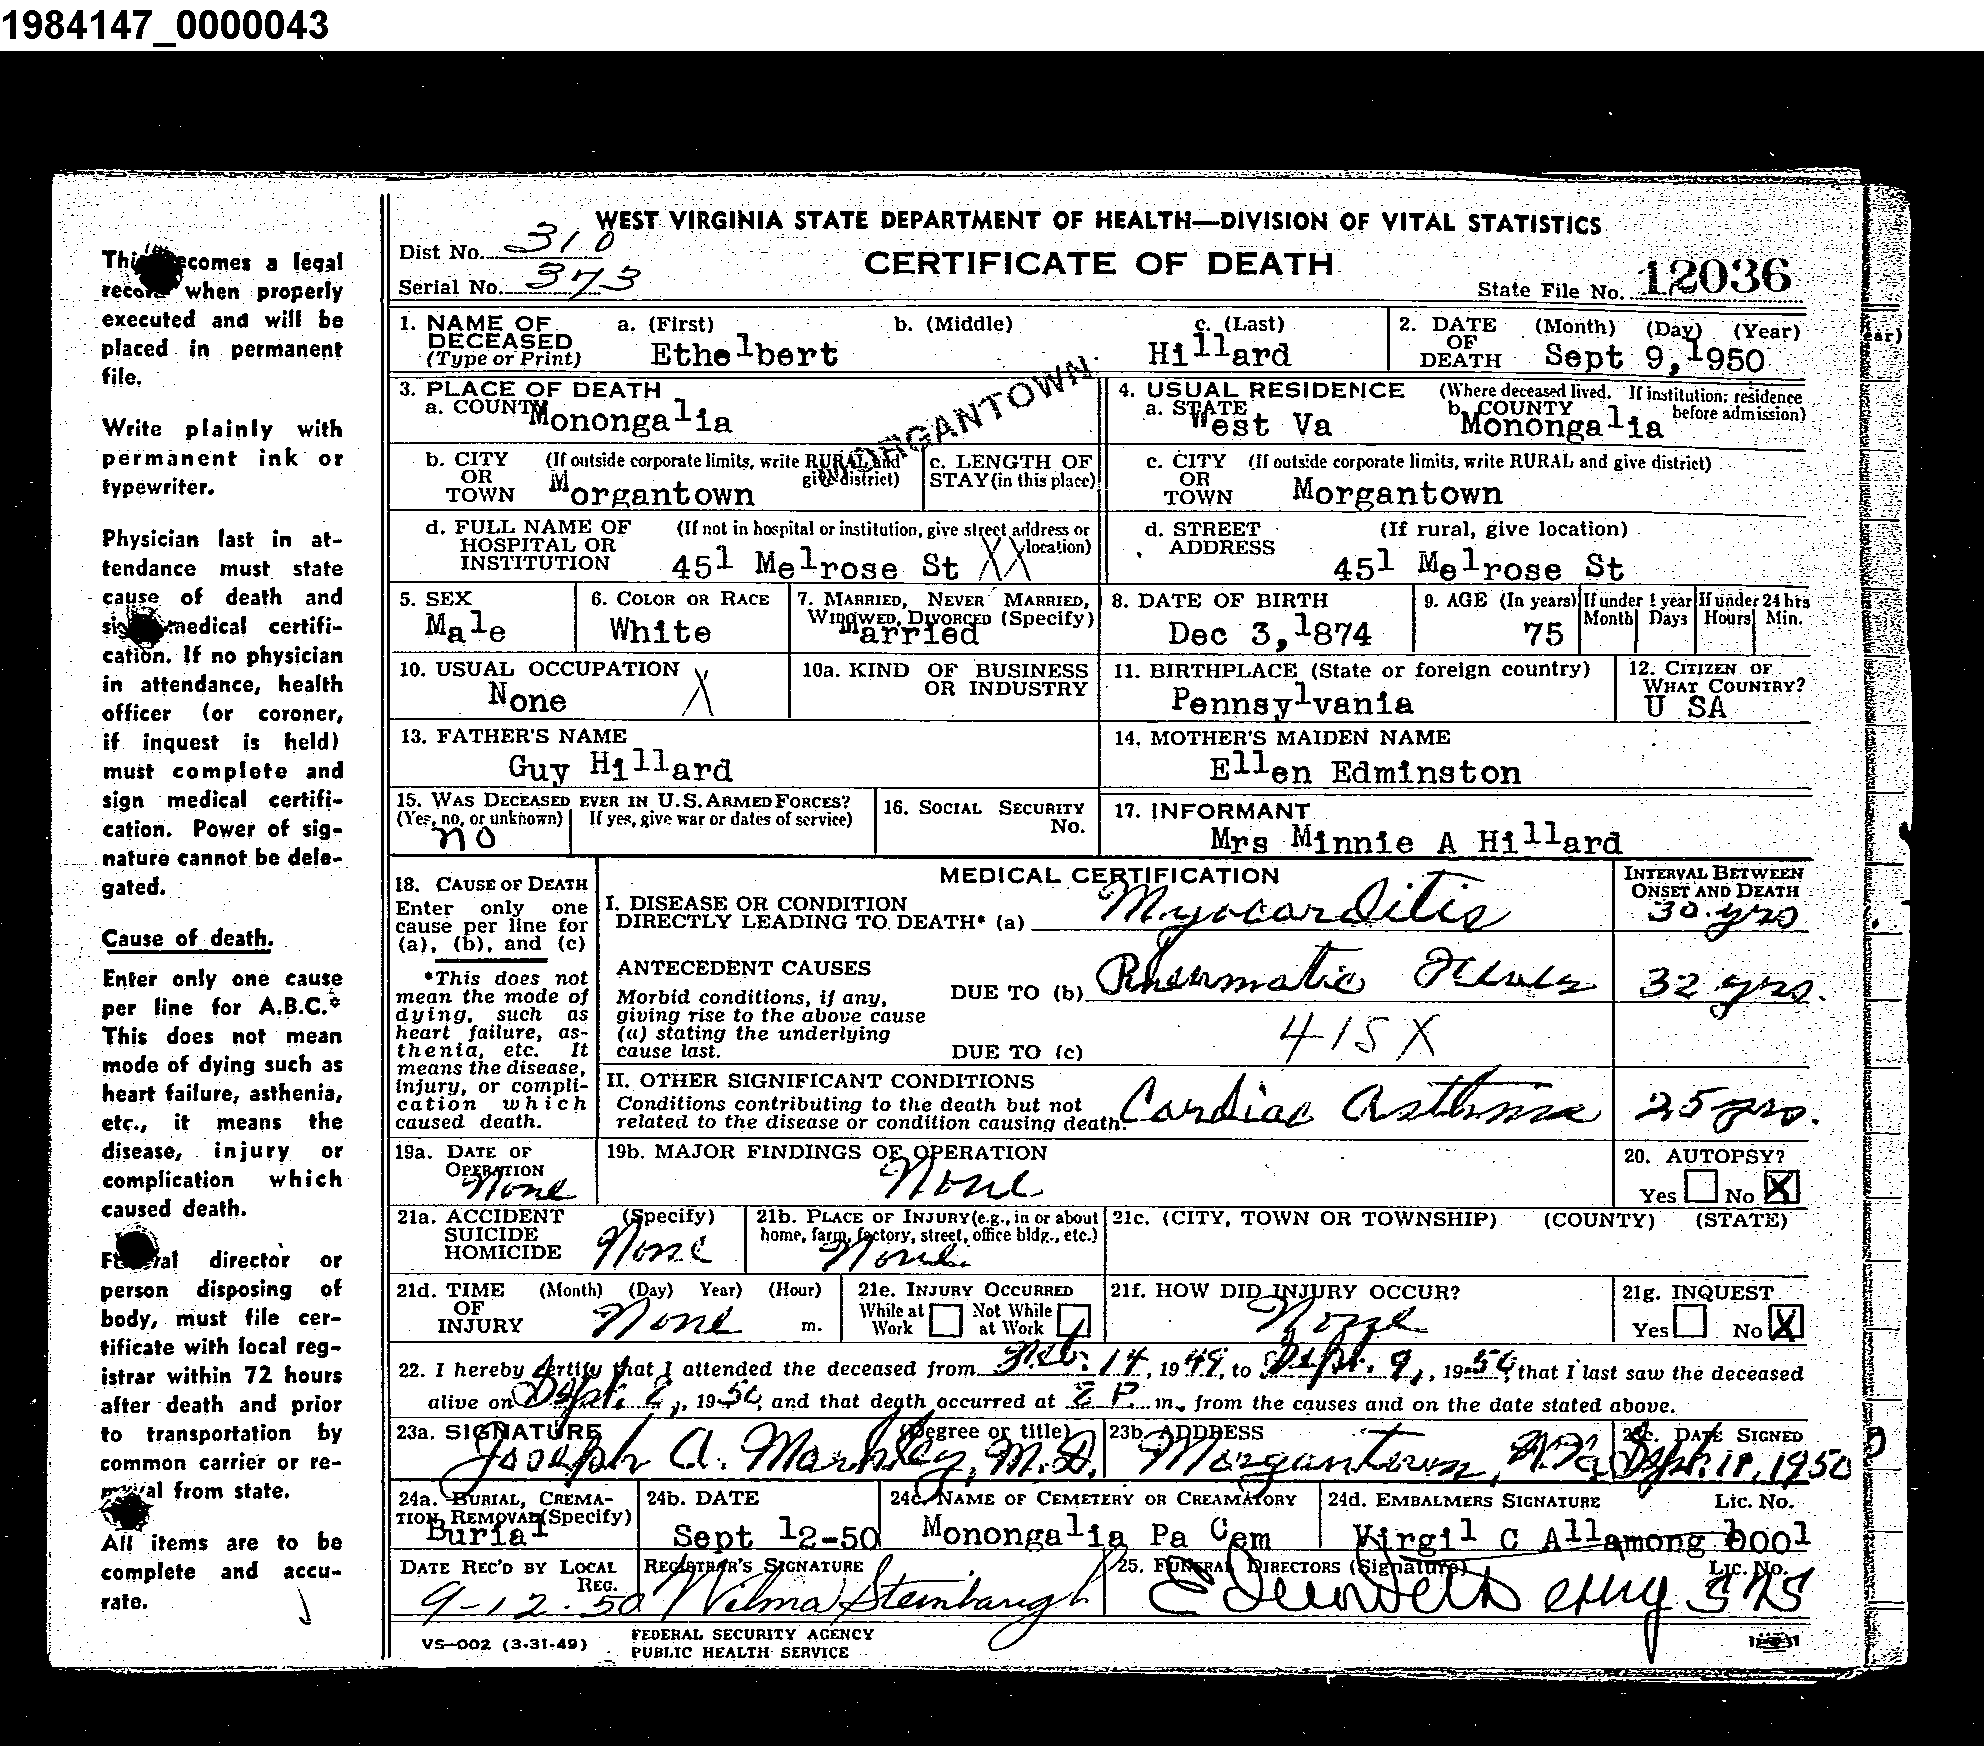 1984147_0000043
This becomes a legal
record when properly
executed and will be
placed in permanent
file.
Write plainly with
permanent ink or
typewriter.
Physician last in at-
tendance must state
cause of death and
sign medical certifi-
cation. If no physician
in attendance, health
officer (or coroner,
if inquest is held)
must complete and
sign medical certifi-
cation. Power of sig-
nature cannot be dele-
gated.
Cause of death.
Enter only one cause
per line for A.B.C.*
This does not mean
mode of dying such as
heart failure, asthenia,
etc., it means the
disease, injury or
complication which
caused death.
Funeral director or
person disposing of
body, must file cer-
tificate with local reg-
istrar within 72 hours
after death and prior
to transportation by
common carrier or re-
moval from state.
All items are to be
complete and accu-
rate.
WEST VIRGINIA STATE DEPARTMENT OF HEALTH—DIVISION OF VITAL STATISTICS
Dist No. 310
CERTIFICATE OF DEATH
Serial No. 373
State File No. 12036
1. NAME OF DECEASED (Type or Print) a. (First) b. (Middle) c. (Last)
Ethelbert Hillard
2. DATE OF DEATH (Month) (Day) (Year)
Sept 9, 1950
3. PLACE OF DEATH
a. COUNTY Monongalia
MORGANTOWN
4. USUAL RESIDENCE (Where deceased lived. If institution: residence before admission)
a. STATE West Va b. COUNTY Monongalia
b. CITY OR TOWN (If outside corporate limits, write RURAL and give district) Morgantown
c. LENGTH OF STAY (in this place)
c. CITY OR TOWN (If outside corporate limits, write RURAL and give district) Morgantown
d. FULL NAME OF HOSPITAL OR INSTITUTION (If not in hospital or institution, give street address or location)
451 Melrose St XX
d. STREET ADDRESS (If rural, give location)
451 Melrose St
5. SEX Male
6. COLOR OR RACE White
7. MARRIED, NEVER MARRIED, WIDOWED, DIVORCED (Specify) Married
8. DATE OF BIRTH Dec 3, 1874
9. AGE (In years) 75 If under 1 year Month Days If under 24 hrs Hours Min.
10. USUAL OCCUPATION None X
10a. KIND OF BUSINESS OR INDUSTRY
11. BIRTHPLACE (State or foreign country) Pennsylvania
12. CITIZEN OF WHAT COUNTRY? U SA
13. FATHER'S NAME Guy Hillard
14. MOTHER'S MAIDEN NAME Ellen Edminston
15. WAS DECEASED EVER IN U.S. ARMED FORCES? (Yes, no, or unknown) If yes, give war or dates of service) no
16. SOCIAL SECURITY No.
17. INFORMANT Mrs Minnie A Hillard
18. CAUSE OF DEATH
Enter only one
cause per line for
(a), (b), and (c)
*This does not
mean the mode of
dying, such as
heart failure, as-
thenia, etc. It
means the disease,
injury, or compli-
cation which
caused death.
MEDICAL CERTIFICATION
INTERVAL BETWEEN ONSET AND DEATH
I. DISEASE OR CONDITION
DIRECTLY LEADING TO DEATH* (a) Myocarditis 30 yrs
ANTECEDENT CAUSES
Morbid conditions, if any,
giving rise to the above cause
(a) stating the underlying
cause last.
DUE TO (b) Rheumatic Fever 32 yrs.
DUE TO (c) 415X
II. OTHER SIGNIFICANT CONDITIONS
Conditions contributing to the death but not
related to the disease or condition causing death. Cardiac Asthma 25 yrs.
19a. DATE OF OPERATION None
19b. MAJOR FINDINGS OF OPERATION None
20. AUTOPSY? Yes No X
21a. ACCIDENT SUICIDE HOMICIDE (Specify) None
21b. PLACE OF INJURY (e.g., in or about home, farm, factory, street, office bldg., etc.) None
21c. (CITY, TOWN OR TOWNSHIP) (COUNTY) (STATE)
21d. TIME OF INJURY (Month) (Day) Year) (Hour) m. None
21e. INJURY OCCURRED While at Work Not While at Work
21f. HOW DID INJURY OCCUR? None
21g. INQUEST Yes No X
22. I hereby certify that I attended the deceased from Feb. 14, 1949, to Sept. 9, 1950, that I last saw the deceased
alive on Sept. 2, 1950, and that death occurred at 2 P. m., from the causes and on the date stated above.
23a. SIGNATURE (Degree or title) Joseph A. Markley, M.D.
23b. ADDRESS Morgantown, W.Va
23c. DATE SIGNED Sept. 11, 1950
24a. BURIAL, CREMATION REMOVAL (Specify) Burial
24b. DATE Sept 12-50
24c. NAME OF CEMETERY OR CREAMATORY Monongalia Pa Cem
24d. EMBALMERS SIGNATURE Lic. No.
Virgil C Allamong
DATE REC'D BY LOCAL REG. 9-12-50
REGISTRAR'S SIGNATURE Wilma Steinbaugh
25. FUNERAL DIRECTORS (Signature) Lic. No.
VS—002 (3-31-49)
FEDERAL SECURITY AGENCY
PUBLIC HEALTH SERVICE